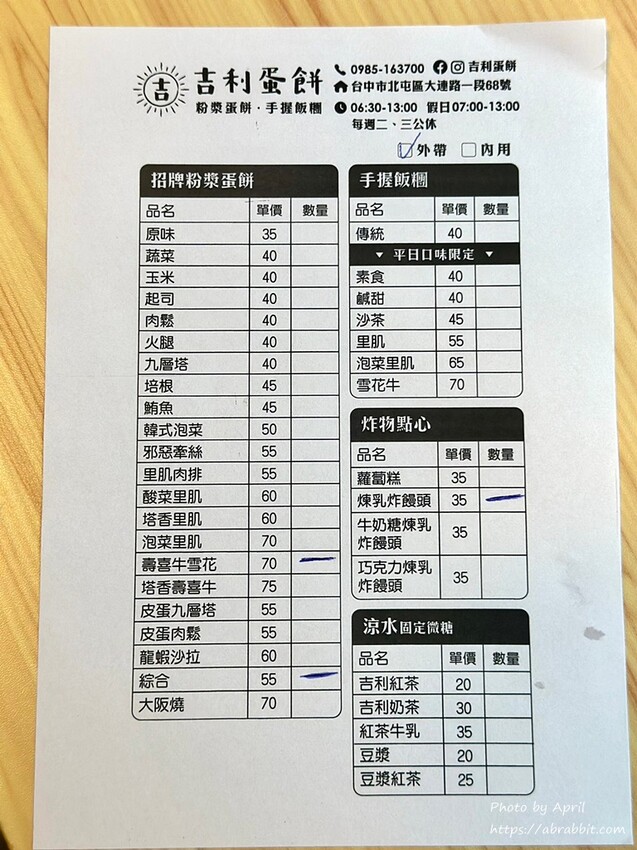 吉
吉利蛋餅
粉漿蛋餅·手握飯糰
0985-163700 吉利蛋餅
台中市北屯區大連路一段68號
06:30-13:00 假日07:00-13:00
每週二、三公休
外帶 內用
招牌粉漿蛋餅
品名 單價 數量
原味 35
蔬菜 40
玉米 40
起司 40
肉鬆 40
火腿 40
九層塔 40
培根 45
鮪魚 45
韓式泡菜 50
邪惡牽絲 55
里肌肉排 55
酸菜里肌 60
塔香里肌 60
泡菜里肌 70
壽喜牛雪花 70
塔香壽喜牛 75
皮蛋九層塔 55
皮蛋肉鬆 55
龍蝦沙拉 60
綜合 55
大阪燒 70
手握飯糰
品名 單價 數量
傳統 40
▼ 平日口味限定 ▼
素食 40
鹹甜 40
沙茶 45
里肌 55
泡菜里肌 65
雪花牛 70
炸物點心
品名 單價 數量
蘿蔔糕 35
煉乳炸饅頭 35
牛奶糖煉乳
炸饅頭 35
巧克力煉乳
炸饅頭 35
涼水固定微糖
品名 單價 數量
吉利紅茶 20
吉利奶茶 30
紅茶牛乳 35
豆漿 20
豆漿紅茶 25
Photo by April
https://abrabbit.com